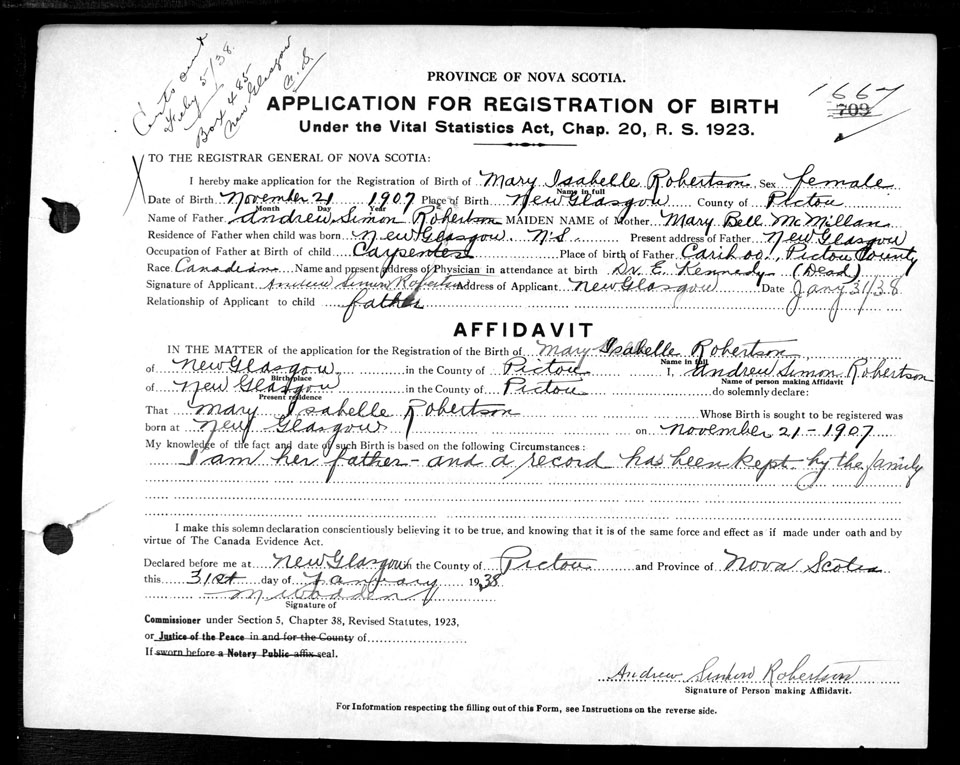 Cert sent
Feby 5/38.
Box 485
New Glasgow
N.S.
PROVINCE OF NOVA SCOTIA.
1667
709
APPLICATION FOR REGISTRATION OF BIRTH
Under the Vital Statistics Act, Chap. 20, R. S. 1923.
X
TO THE REGISTRAR GENERAL OF NOVA SCOTIA:
I hereby make application for the Registration of Birth of Mary Isabelle Robertson Sex female
Name in full
Date of Birth November 21 1907 Place of Birth New Glasgow County of Pictou
Month Day Year
Name of Father Andrew Simon Robertson MAIDEN NAME of Mother Mary Bell McMillan
Residence of Father when child was born New Glasgow. N.S. Present address of Father New Glasgow
Occupation of Father at Birth of child Carpenter Place of birth of Father Cariboo, Pictou County
Race Canadian Name and present address of Physician in attendance at birth Dr. E. Kennedy (Dead)
Signature of Applicant Andrew Simon Robertson Address of Applicant New Glasgow Date Jany 31/38
Relationship of Applicant to child father
AFFIDAVIT
IN THE MATTER of the application for the Registration of the Birth of Mary Isabelle Robertson,
Name in full
of New Glasgow in the County of Pictou I, Andrew Simon Robertson
Birthplace Name of person making Affidavit
of New Glasgow in the County of Pictou do solemnly declare:
Present residence
That Mary Isabelle Robertson Whose Birth is sought to be registered was
born at New Glasgow on November 21-1907
My knowledge of the fact and date of such Birth is based on the following Circumstances:
I am her father - and a record has been kept by the family
I make this solemn declaration conscientiously believing it to be true, and knowing that it is of the same force and effect as if made under oath and by
virtue of The Canada Evidence Act.
Declared before me at New Glasgow in the County of Pictou and Province of Nova Scotia
this 31st day of January 1938
Signature of
Commissioner under Section 5, Chapter 38, Revised Statutes, 1923,
or Justice of the Peace in and for the County of
If sworn before a Notary Public affix seal.
Andrew Simon Robertson
Signature of Person making Affidavit.
For Information respecting the filling out of this Form, see Instructions on the reverse side.